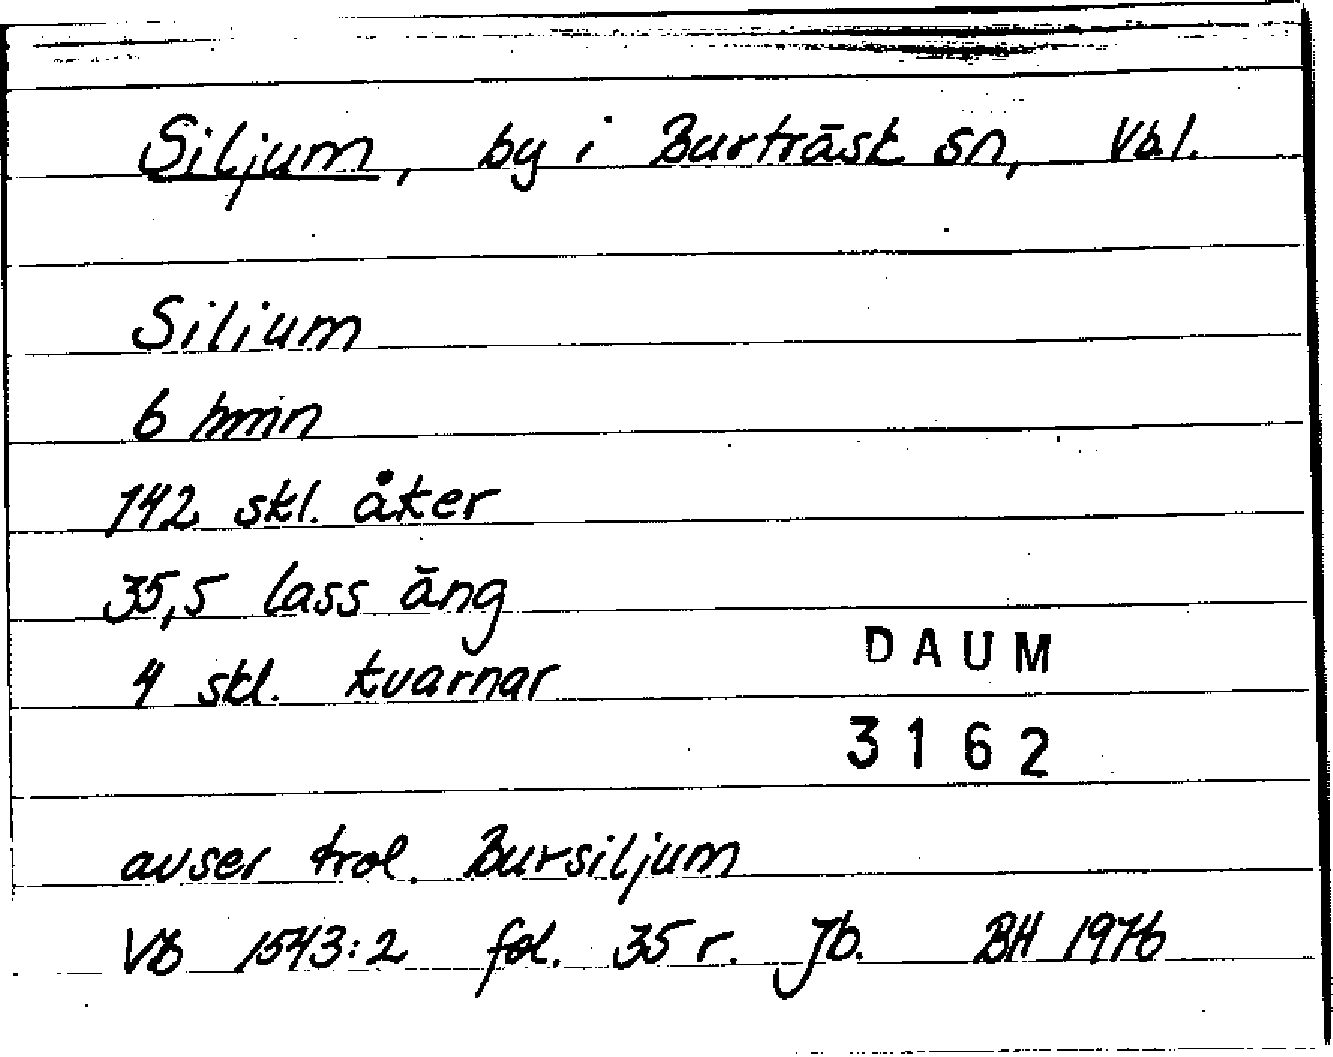 Siljum, by i Burträsk sn, Vb.l.
Silium
6 hmin
142 skl. åker
35,5 lass äng
4 skl. kvarnar
DAUM
3162
avser trol. Bursiljum
Vb 1543:2 fol. 35 r. Jb. BH 1976